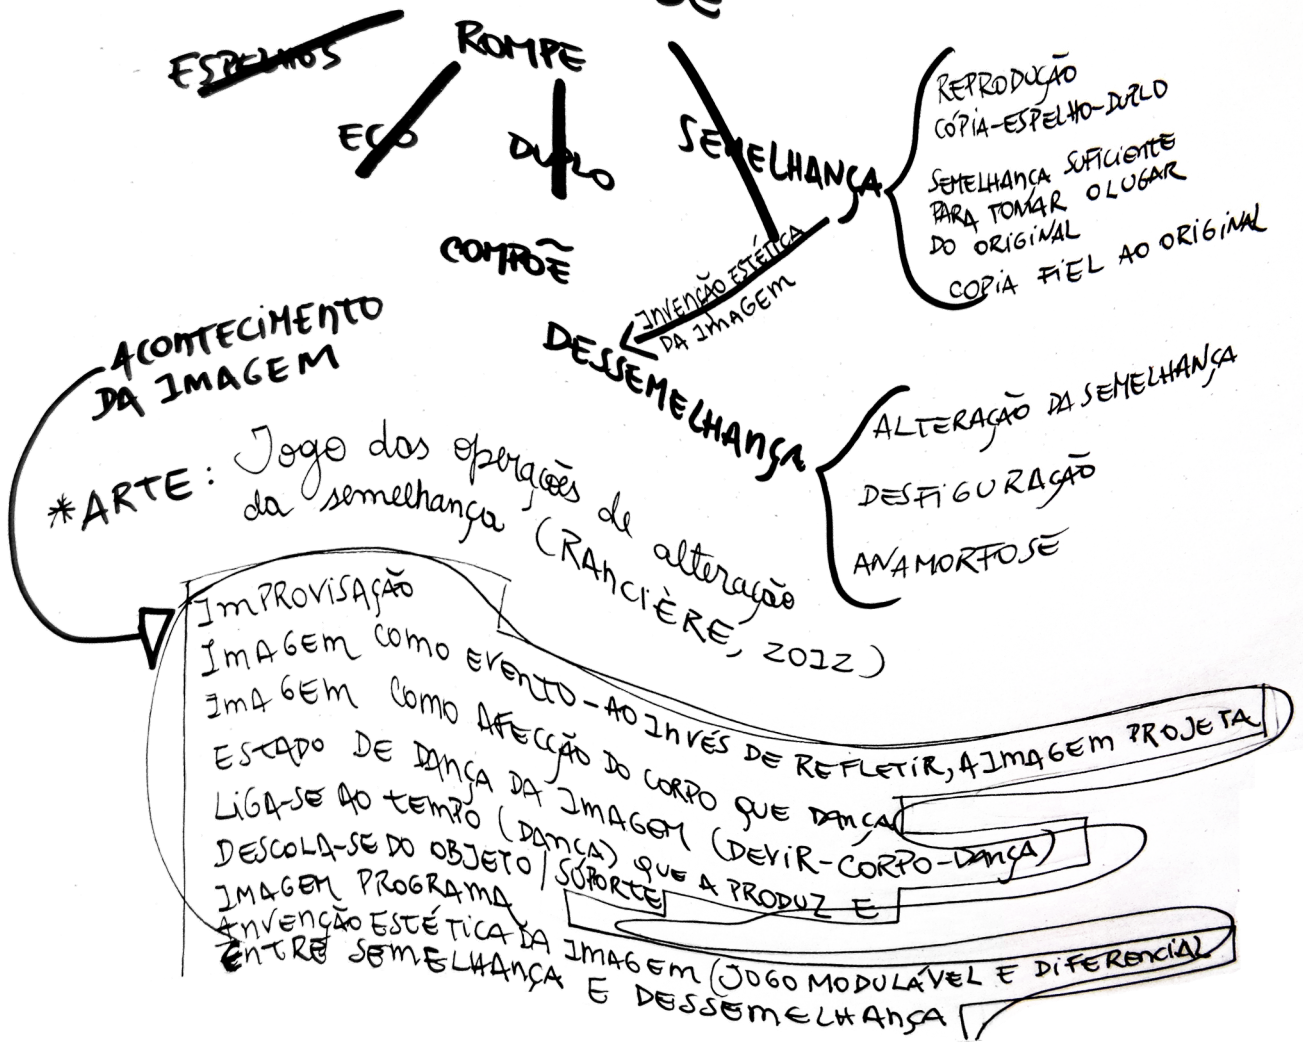 ESPELHOS
ROMPE
ECO
DUPLO
SEMELHANÇA
REPRODUÇÃO
CÓPIA-ESPELHO-DUPLO
SEMELHANÇA SUFICIENTE
PARA TOMAR O LUGAR
DO ORIGINAL
COPIA FIEL AO ORIGINAL
COMPÕE
INVENÇÃO ESTÉTICA
DA IMAGEM
DESSEMELHANÇA
ALTERAÇÃO DA SEMELHANÇA
DESFIGURAÇÃO
ANAMORFOSE
ACONTECIMENTO
DA IMAGEM
*ARTE: Jogo das operações de alteração
da semelhança (RANCIÈRE, 2012)
IMPROVISAÇÃO
IMAGEM COMO EVENTO - AO INVÉS DE REFLETIR, A IMAGEM PROJETA
IMAGEM COMO AFECÇÃO DO CORPO QUE DANÇA
ESTADO DE DANÇA DA IMAGEM (DEVIR-CORPO-DANÇA)
LIGA-SE AO TEMPO (DANÇA) QUE A PRODUZ E
DESCOLA-SE DO OBJETO/SUPORTE
IMAGEM PROGRAMA
INVENÇÃO ESTÉTICA DA IMAGEM (JOGO MODULÁVEL E DIFERENCIAL
ENTRE SEMELHANÇA E DESSEMELHANÇA